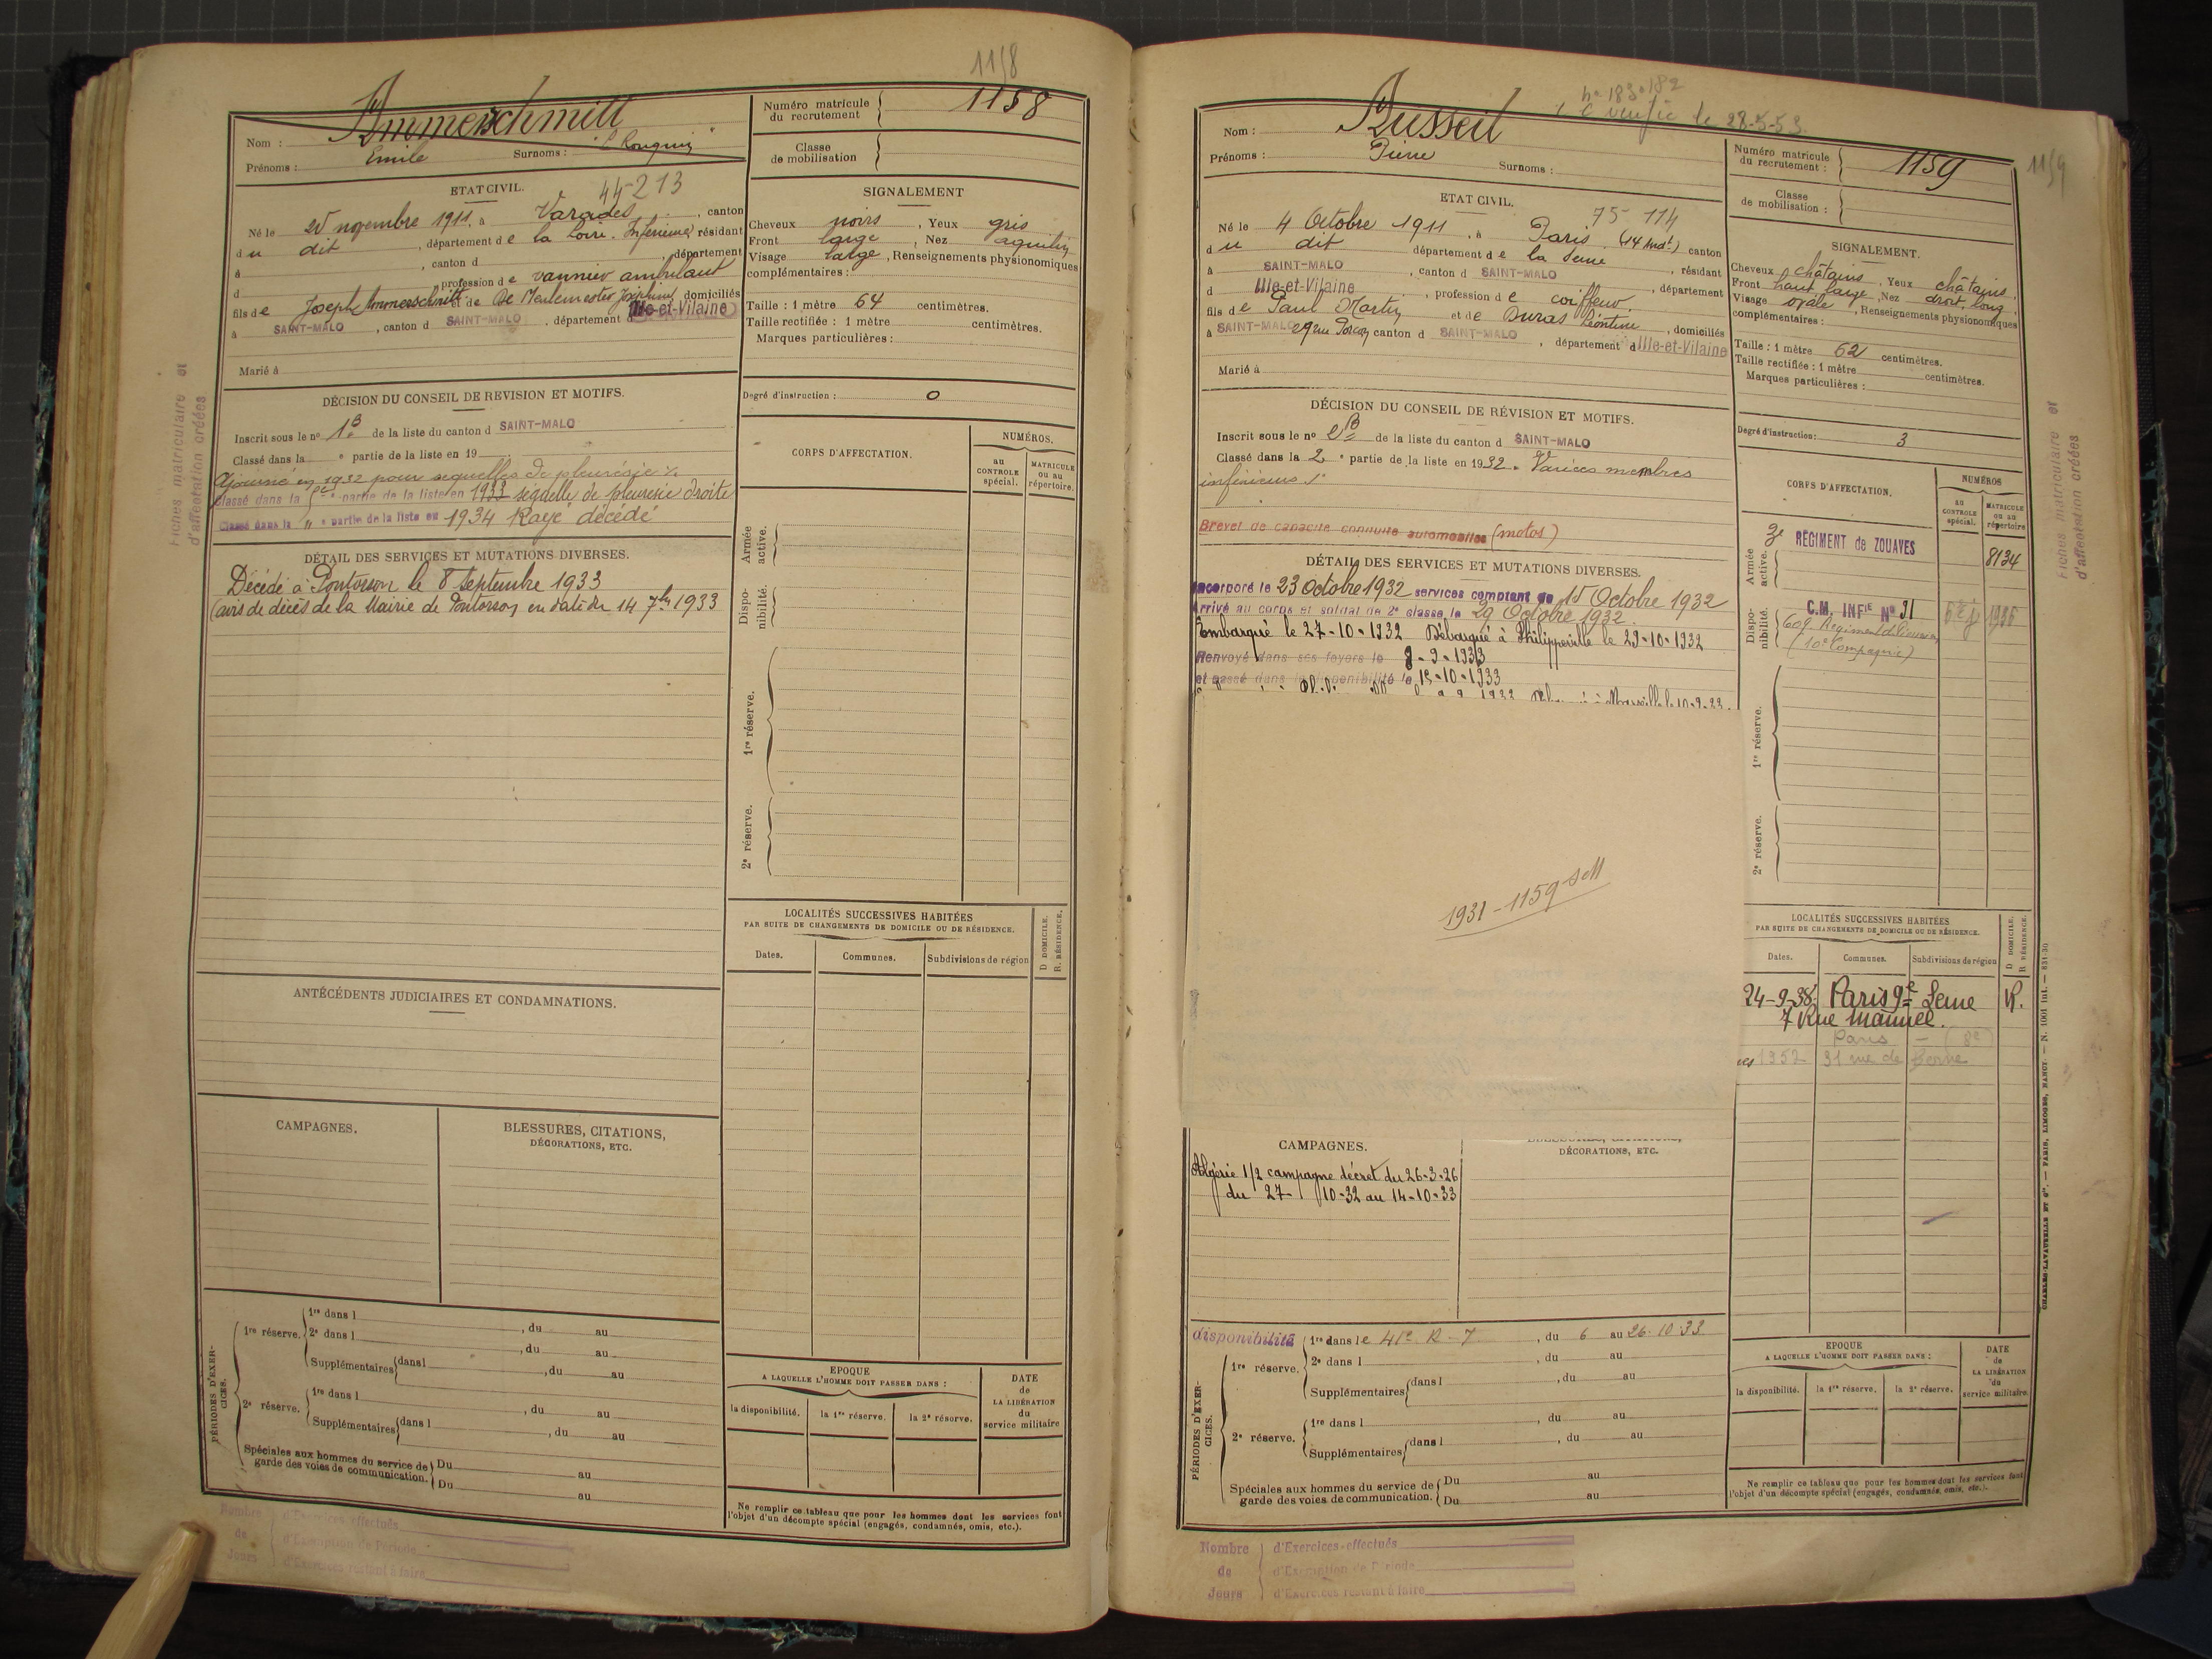 1158
Nom : Ammerschmitt
Prénoms : Emile Surnoms :
Numéro matricule du recrutement 1158
Classe de mobilisation
ETAT CIVIL. 44-213
Né le novembre 1911, à Varades, canton
du dit, département de la Loire-Inférieure, résidant
à , canton d , département
d , profession de vannier ambulant
fils de Joseph Ammerschmitt et de De Meulemester Joséphine, domiciliés
à SAINT-MALO, canton d SAINT-MALO, département d Ille-et-Vilaine
Marié à
SIGNALEMENT
Cheveux noirs, Yeux gris
Front large, Nez aquilin
Visage large, Renseignements physionomiques
complémentaires :
Taille : 1 mètre 64 centimètres.
Taille rectifiée : 1 mètre centimètres.
Marques particulières :
Degré d'instruction : 0
DÉCISION DU CONSEIL DE REVISION ET MOTIFS.
Inscrit sous le nº 1 B de la liste du canton d SAINT-MALO
Classé dans la e partie de la liste en 19
Ajourné en 1932 pour sequelles de pleurésie
Classé dans la partie de la liste en 1933 sequelle de pleuresie droite
Classé dans la " e partie de la liste en 1934 Rayé décédé
DÉTAIL DES SERVICES ET MUTATIONS DIVERSES.
Décédé à Pontorson le 8 Septembre 1933
(avis de décès de la Mairie de Pontorson en date du 14 7bre 1933
CORPS D'AFFECTATION.
NUMÉROS.
au CONTROLE spécial.
MATRICULE ou au répertoire.
Armée active.
Disponibilité.
1re réserve.
2e réserve.
LOCALITÉS SUCCESSIVES HABITÉES
PAR SUITE DE CHANGEMENTS DE DOMICILE OU DE RÉSIDENCE.
D DOMICILE.
R. RÉSIDENCE.
Dates. Communes. Subdivisions de région
ANTÉCÉDENTS JUDICIAIRES ET CONDAMNATIONS.
CAMPAGNES.
BLESSURES, CITATIONS,
DÉCORATIONS, ETC.
PÉRIODES D'EXERCICES.
1re réserve. 1re dans l , du au
2e dans l , du au
Supplémentaires dans l , du au
2e réserve. 1re dans l , du au
Supplémentaires dans l , du au
Spéciales aux hommes du service de garde des voies de communication. Du au
Du au
EPOQUE
A LAQUELLE L'HOMME DOIT PASSER DANS :
la disponibilité. la 1re réserve. la 2e réserve.
DATE de LA LIBÉRATION du service militaire
Ne remplir ce tableau que pour les hommes dont les services font
l'objet d'un décompte spécial (engagés, condamnés, omis, etc.).
Nombre de Jours
d'Exercices effectués
d'Exemption de Période
d'Exercices restant à faire
Fiches matriculaire et
d'affectation créées
vérifié le 28-5-53.
Nom : Russeil
Prénoms : Pierre Surnoms :
Numéro matricule du recrutement : 1159
1159
Classe de mobilisation :
ETAT CIVIL. 75 114
Né le 4 Octobre 1911, à Paris (14 arrdt) canton
du dit département de la Seine, résidant
à SAINT-MALO, canton d SAINT-MALO, département
d Ille-et-Vilaine, profession de coiffeur
fils de Paul Martin et de Duras Léontine, domiciliés
à SAINT-MALO 29 rue Porcon canton d SAINT-MALO, département d Ille-et-Vilaine
Marié à
SIGNALEMENT.
Cheveux châtains, Yeux châtains
Front haut large, Nez droit long
Visage ovale, Renseignements physionomiques
complémentaires :
Taille : 1 mètre 62 centimètres.
Taille rectifiée : 1 mètre centimètres.
Marques particulières :
Degré d'instruction : 3
DÉCISION DU CONSEIL DE RÉVISION ET MOTIFS.
Inscrit sous le nº 2 B de la liste du canton d SAINT-MALO
Classé dans la 2 e partie de la liste en 1932. Varices membres
inférieurs
Brevet de capacité conduite automobiles (motos)
DÉTAIL DES SERVICES ET MUTATIONS DIVERSES.
Incorporé le 23 Octobre 1932 services comptant du 15 Octobre 1932
Arrivé au corps et soldat de 2e classe le 29 Octobre 1932.
Embarqué le 27-10-1932 Débarqué à Philippeville le 29-10-1932
Renvoyé dans ses foyers le 8-9-1933
et passé dans la disponibilité le 15-10-1933
1931-1159 SM
CORPS D'AFFECTATION.
NUMÉROS
au CONTROLE spécial.
MATRICULE ou au répertoire
Armée active. 3e RÉGIMENT de ZOUAVES 8134
Disponibilité. C.M. INFIE Nº 31 1936
(10e Compagnie)
1re réserve.
2e réserve.
LOCALITÉS SUCCESSIVES HABITÉES
PAR SUITE DE CHANGEMENTS DE DOMICILE OU DE RÉSIDENCE.
D DOMICILE.
R RÉSIDENCE.
Dates. Communes. Subdivisions de région
24-9-38 Paris 9e Seine R.
7 Rue Manuel.
Paris - (8e)
1952 31 rue de Berne
CAMPAGNES.
DÉCORATIONS, ETC.
Algérie 1/2 campagne décret du 26-3-26
du 27-10-32 au 14-10-33
disponibilité
PÉRIODES D'EXERCICES.
1re réserve. 1re dans le 41e R-7, du 6 au 26-10-33
2e dans l , du au
Supplémentaires dans l , du au
2e réserve. 1re dans l , du au
Supplémentaires dans l , du au
Spéciales aux hommes du service de garde des voies de communication. Du au
Du au
EPOQUE
A LAQUELLE L'HOMME DOIT PASSER DANS :
la disponibilité. la 1re réserve. la 2e réserve.
DATE de LA LIBÉRATION du service militaire
Ne remplir ce tableau que pour les hommes dont les services font
l'objet d'un décompte spécial (engagés, condamnés, omis, etc.).
Nombre de Jours
d'Exercices effectués
d'Exemption de Période
d'Exercices restant à faire
Fiches matriculaire et
d'affectation créées
CHARLES-LAVAUZELLE ET Cie. — PARIS, LIMOGES, NANCY. — N. 1001 Int. — 831-30